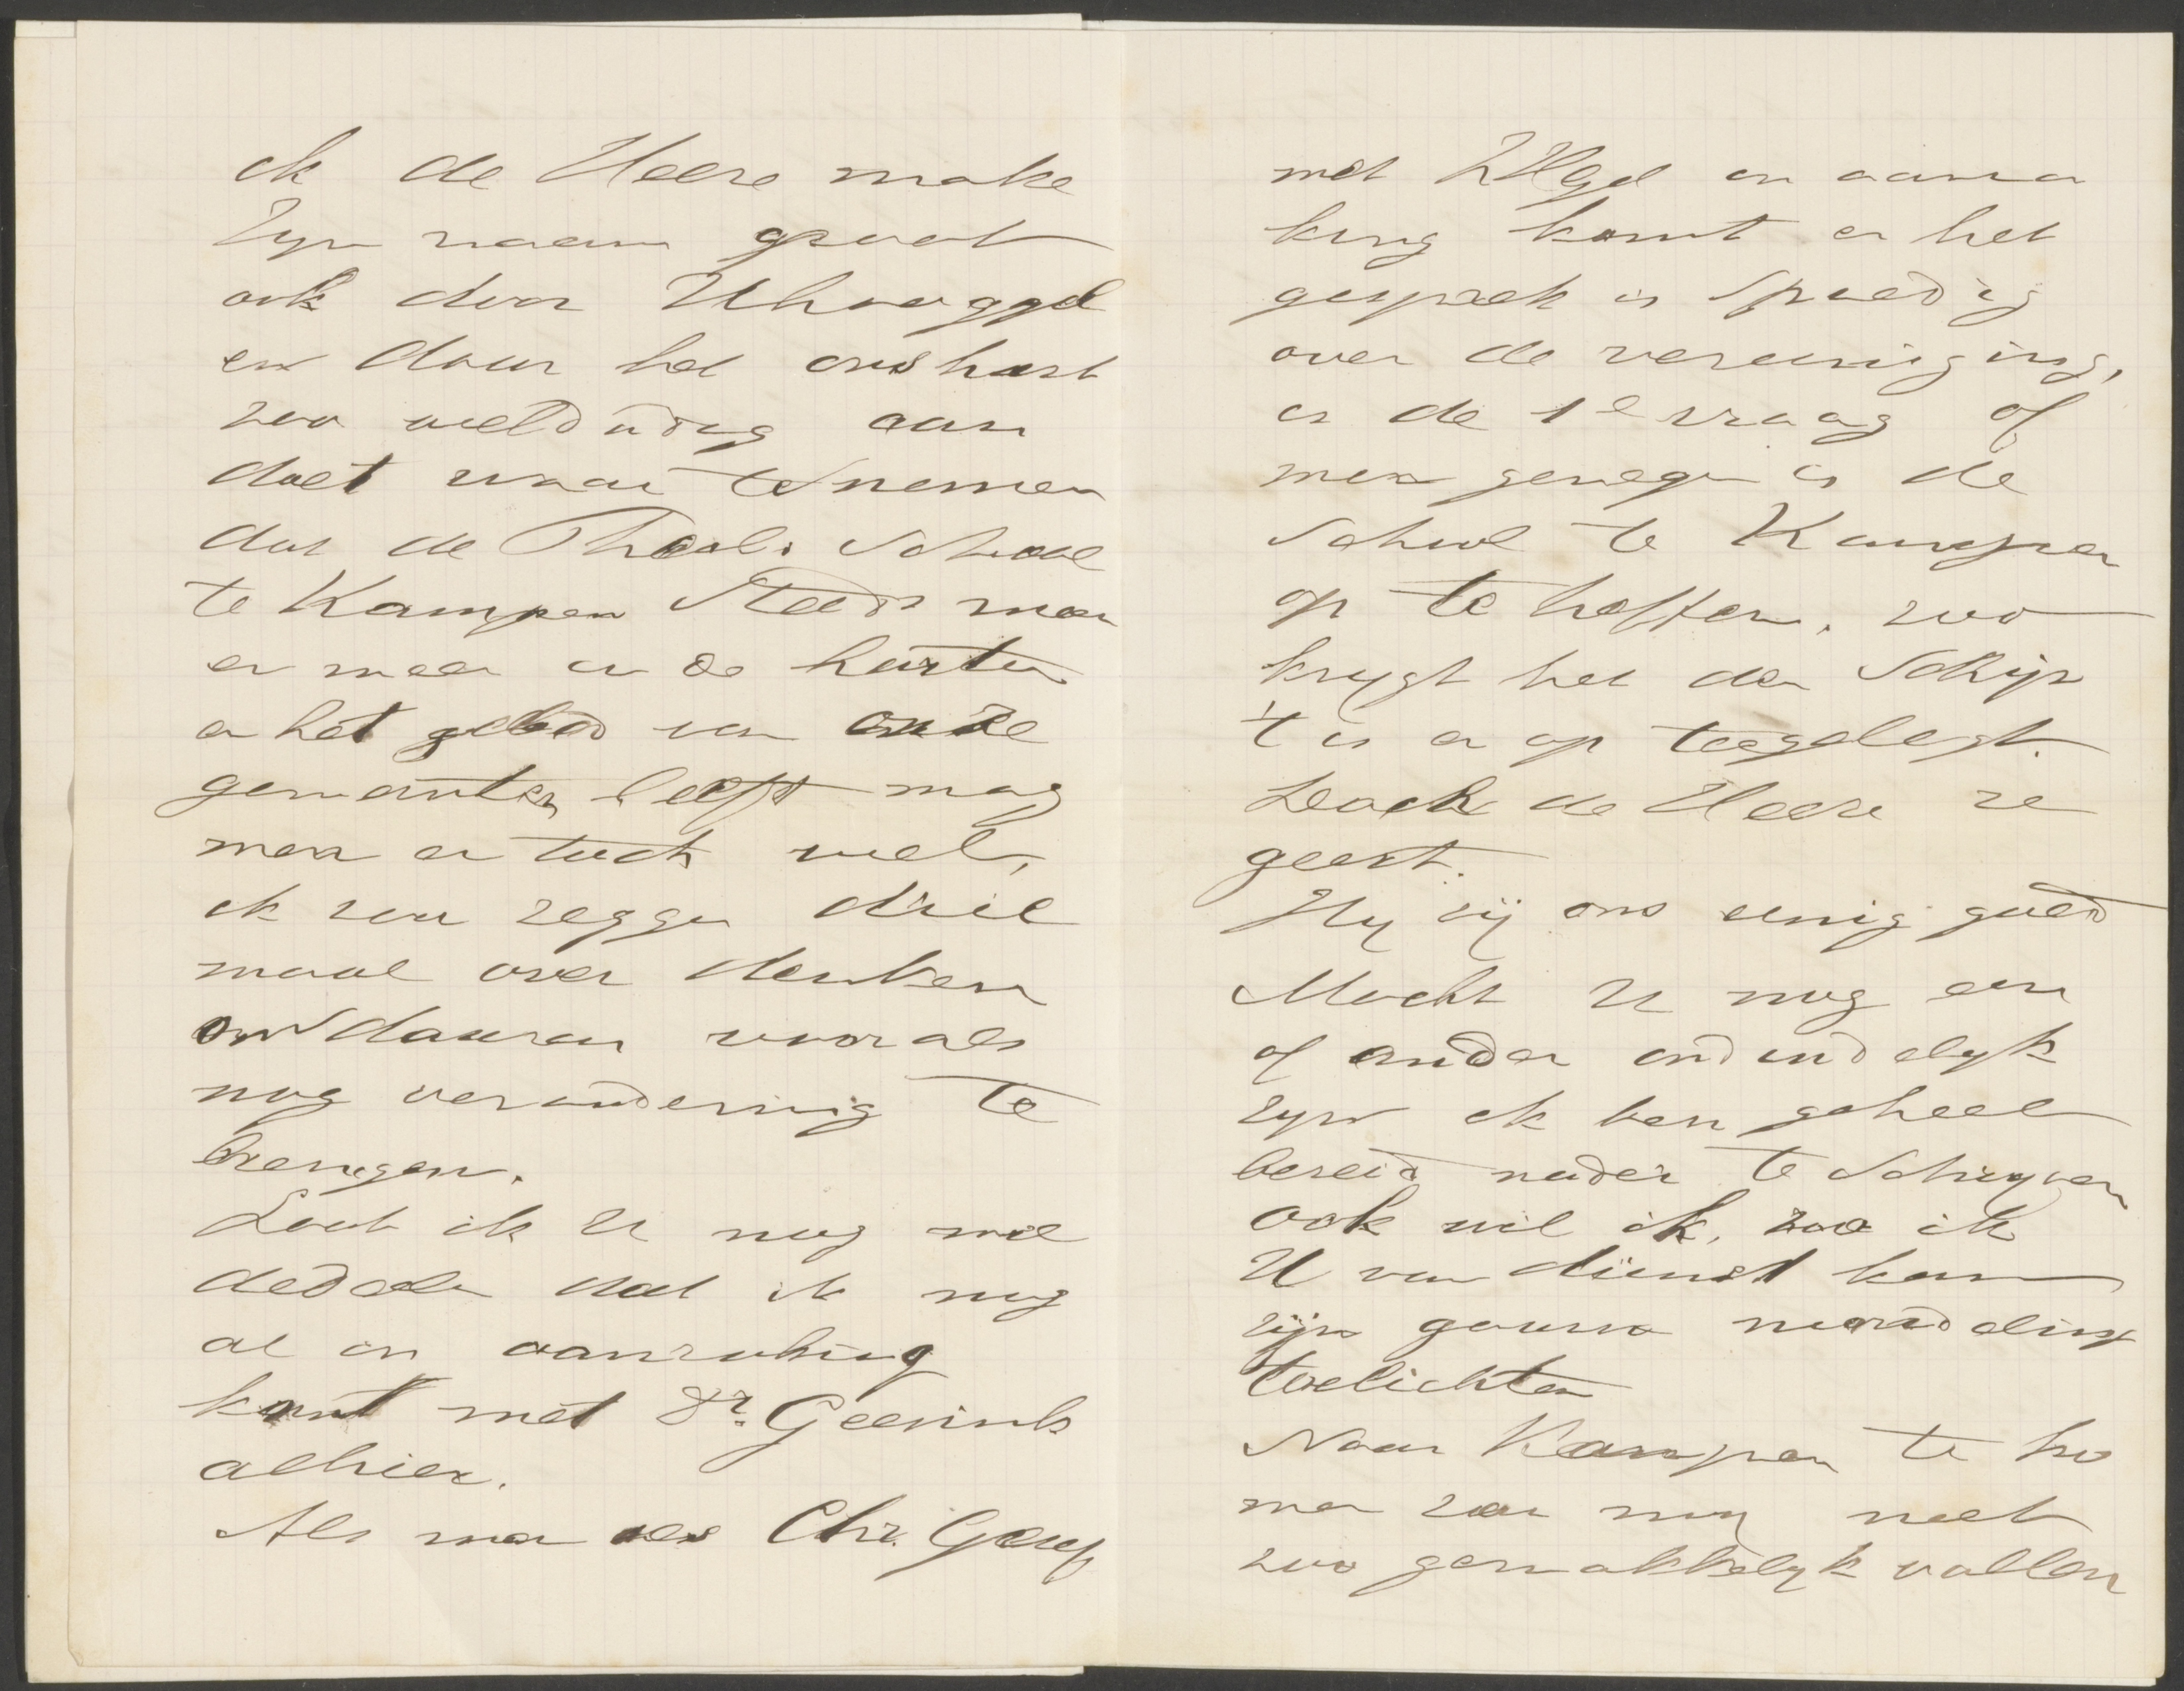 ik de Heere make
Zyn naam groot
ook door UhoogGel
en daar het ons hart
zoo weldadig aan
doet waar te nemen
dat de Theol. School
te Kampen Steeds meer
en meer in de harten
en het gebed van onze
gemeenten leeft mag
men er toch wel,
ik zou zeggen drie
maal over denken
om daaraan vooral
nog verandering te
brengen.
Laat ik U nog me
dedeelen dat ik nog
al in aanraking
komt met Dr. Geerinks
alhier.
Als men als Chr. Geref
met ZHGel in aanra
king komt en het
gesprek is Spoedig
over de vereeniging,
is de 1e vraag of
men genegen is de
School te Kampen
op te heffen. zoo
krygt het den Schijn
't is er op toegelegt.
Doch de Heere re
geert.
Hy zij ons eenig goed
Mocht U nog een
of ander onduidelyk
zyn ik ben geheel
bereid nader te Schryven
ook wil ik, zoo ik
U van dienst kan
zijn gaarne mondeling
toelichten
Naar Kampen te ko
men zou my niet
zoo gemakkelyk vallen